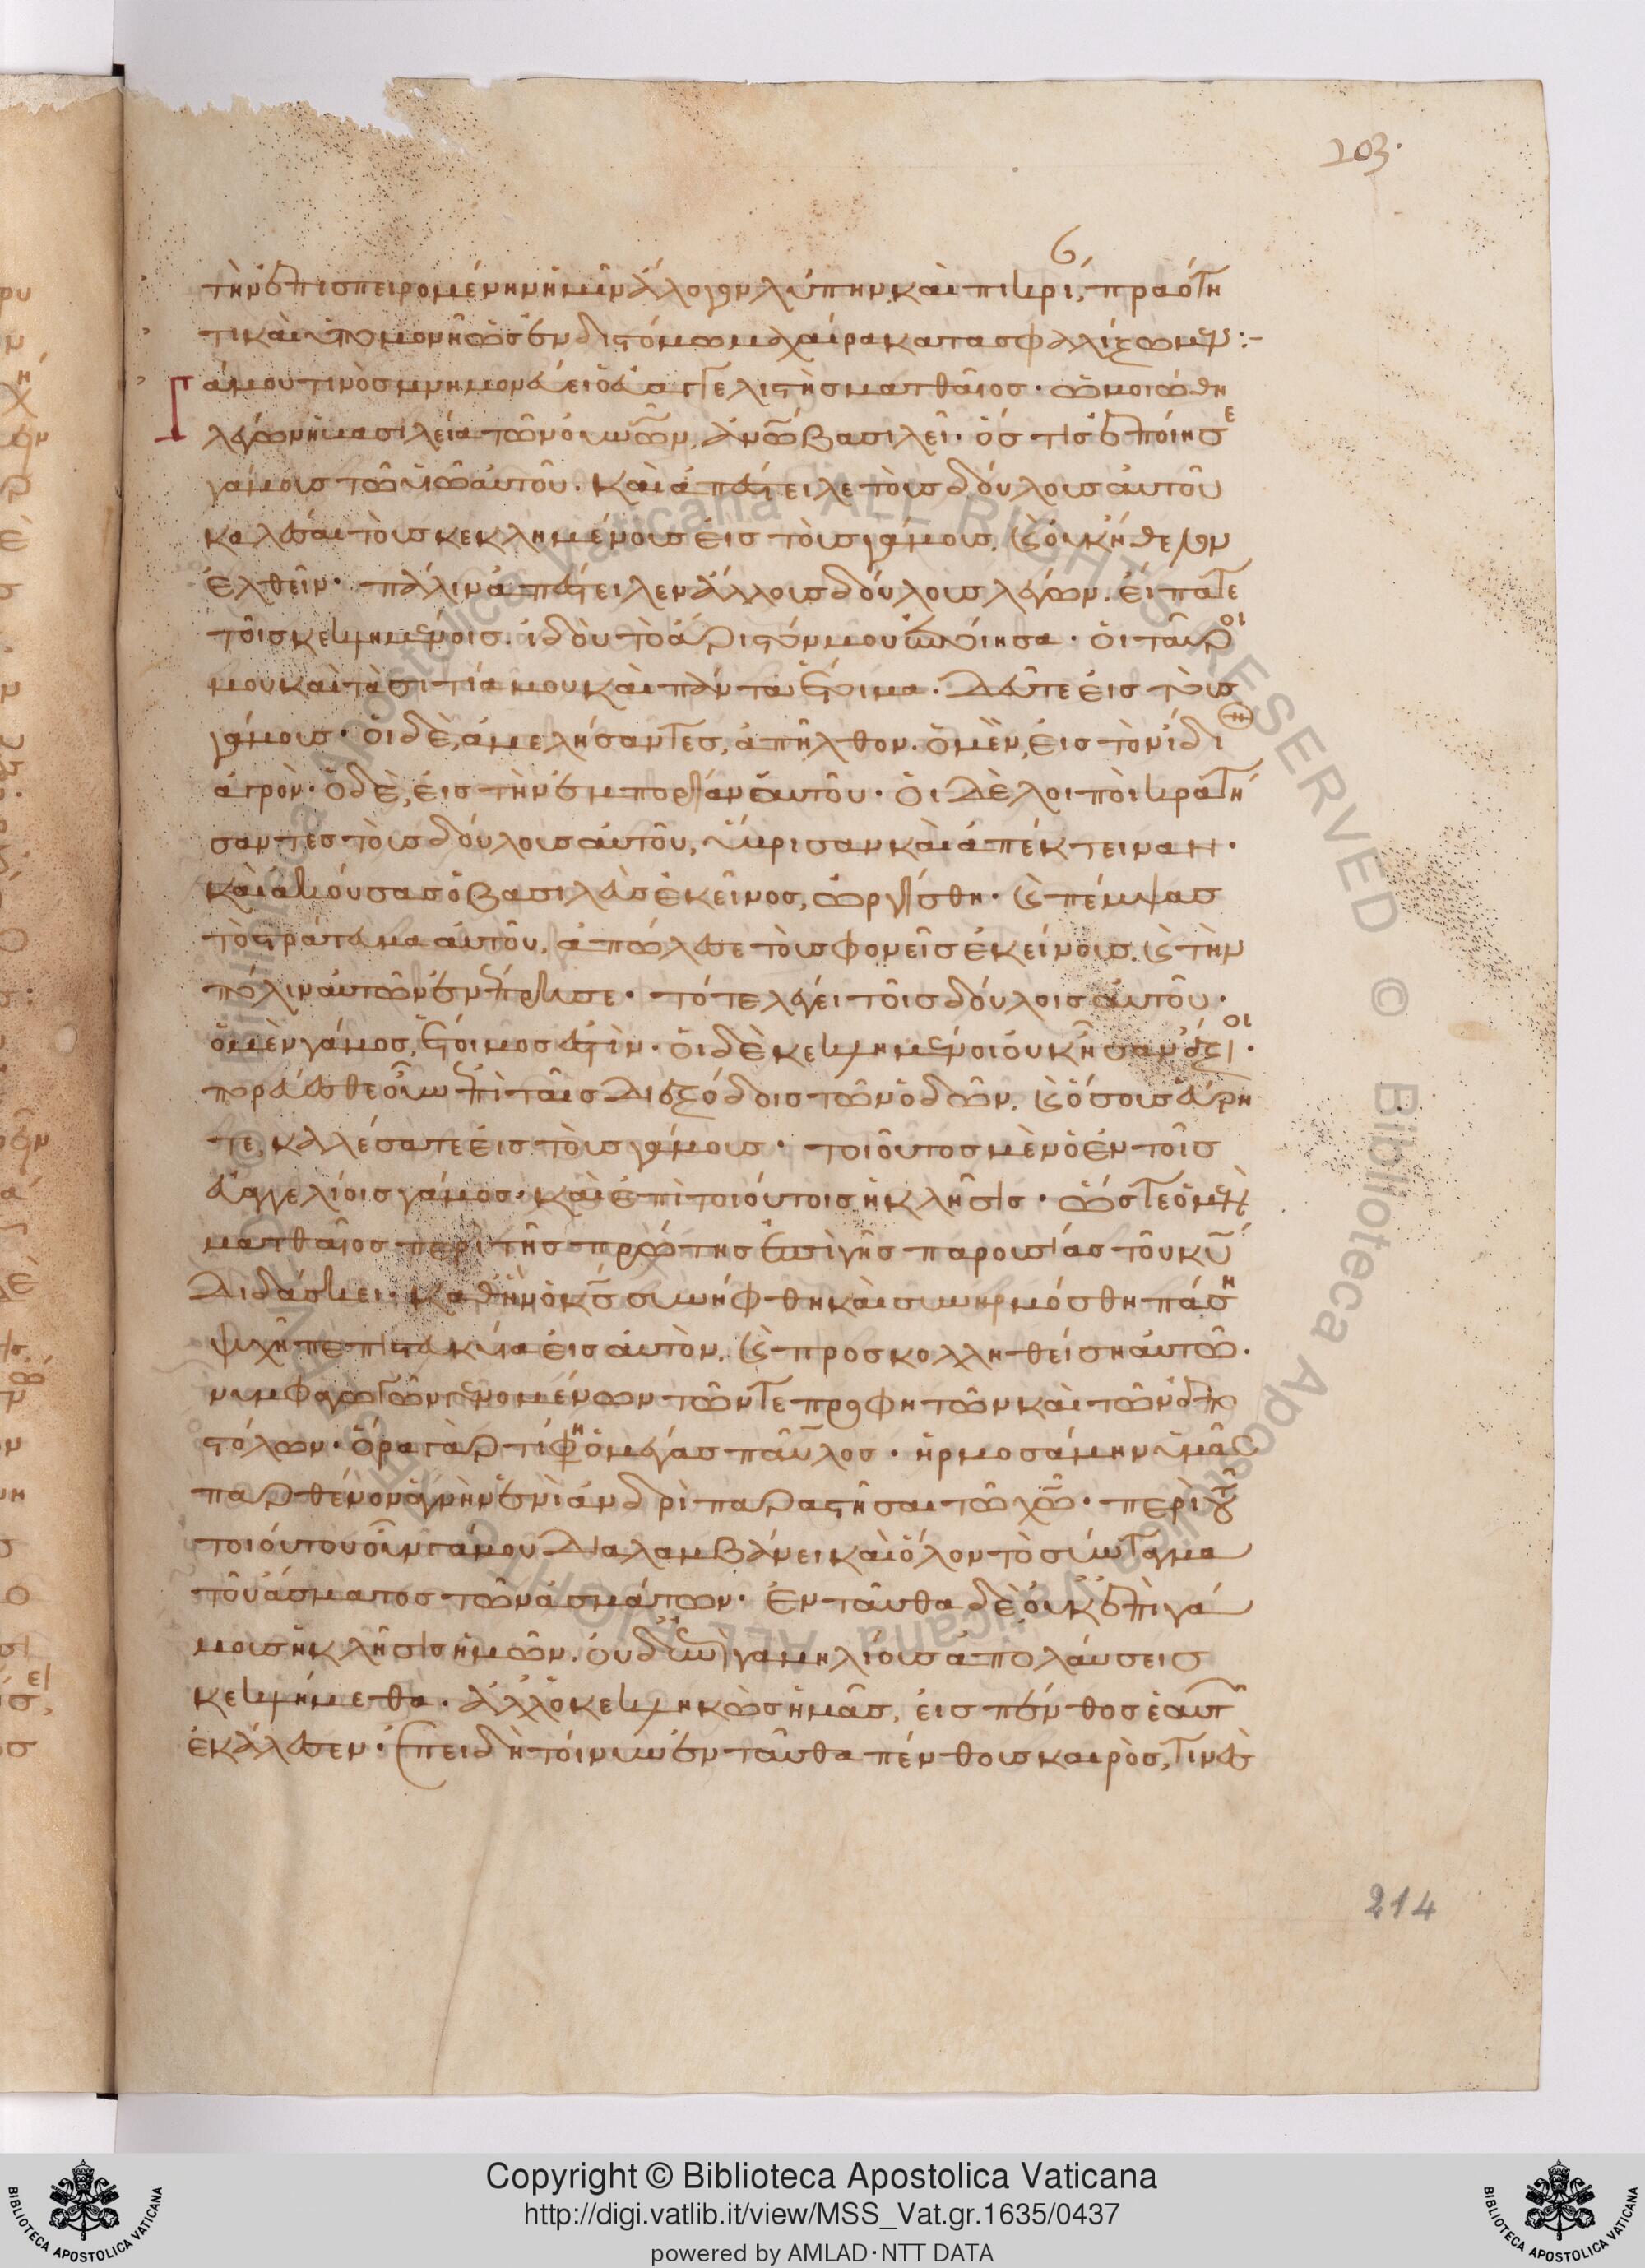 203.
τὴν ἐπισπειρομένην ἡμῖν ἄλογον λύπην καὶ πικρί, πραότη
τι καὶ ὑπομονῆ ὡς ἐν διστόμω μαχαίρα κατασφαλίζωμεν :-
Γάμου τινὸς μνημονεύει ὁ εὐαγγελιστὴς ματθαῖος · ὡμοιώθη
λέγων ἡ βασιλεία τῶν οὐνῶν, ἀνῶ βασιλεῖ · ὅς τις ἐποίησε
γάμους τῶ υἱῶ αὐτοῦ · καὶ ἀπέστειλε τοὺς δούλους αὐτοῦ
καλέσαι τοὺς κεκλημένους εἰς τοὺς γάμους, κὶ οὐκ ἤθελον
ἐλθεῖν · πάλιν ἀπέστειλεν ἄλλους δούλους λέγων. εἴπατε
τοῖς κεκλημένοις. ἰδοὺ τὸ ἄριστόν μου ἡτοίμασα · οἱ ταῦροι
μου καὶ τὰ σιτιστά μου καὶ πάντα ἕτοιμα. δεῦτε εἰς τοὺς
γάμους · οἱ δὲ, ἀμελήσαντες, ἀπῆλθον. ὁ μὲν, εἰς τὸν ἴδι
ἀγρόν · ὁ δὲ, εἰς τὴν ἐμπορίαν ἑαυτοῦ · οἱ δὲ λοιποὶ κρατή
σαντες τοὺς δούλους αὐτοῦ, ὕβρισαν καὶ ἀπέκτειναν ·
καὶ ἀκούσας ὁ βασιλεὺς ἐκεῖνος, ὠργίσθη · κὶ πέμψας
τὸ στράτευμα αὐτοῦ, ἀπώλεσε τοὺς φονεῖς ἐκείνους, κὶ τὴν
πόλιν αὐτῶν ἐνέπρησε · τότε λέγει τοῖς δούλοις αὐτοῦ ·
ὁ μὲν γάμος, ἕτοιμος ἐστὶν · οἱ δὲ κεκλημένοι οὐκ ἦσαν ἄξιοι ·
πορεύεσθε οὖν ἐπὶ ταῖς διεξόδοις τῶν ὁδῶν, κὶ ὅσους εὕρη
τε, καλέσατε εἰς τοὺς γάμους · τοιοῦτος μὲν ὁ ἐν τοῖς
εὐαγγελίοις γάμος · καὶ ἐπὶ τοιούτοις ἡ κλῆσις · ὥστε ὁ μὲν
ματθαῖος περὶ τῆς πρώτης ἐπὶ γῆς παρουσίας τοῦ κυ
διδάσκει · καθ' ἣν ὁ κς συνήφθη καὶ συνηρμόσθη πάση
ψυχῆ πεπιστευκυία εἰς αὐτὸν, κὶ προσκολληθείση αὐτῶ ·
νυμφαγωγῶν γενομένων τῶν τε προφητῶν καὶ τῶν ἀπο
στόλων · ὅρα γὰρ τί φη ὁ μέγας παῦλος · ἡρμοσάμην ὑμᾶς
παρθένον ἁγνὴν ἑνὶ ἀνδρὶ παραστῆσαι τῶ χω · περὶ τοῦ
τοιούτου οὖν γάμου διαλαμβάνει καὶ ὅλον τὸ σύνταγμα
τοῦ ἄσματος τῶν ἀσμάτων · ἐνταῦθα δὲ οὐκ ἐπὶ γά
μους ἡ κλῆσις ἡμῶν. οὐδ' ἐπὶ γαμηλίους ἀπολαύσεις
κεκλήμεθα · ἀλλ' ὁ κεκληκὼς ἡμᾶς, εἰς πένθος ἑαυτ
ἐκάλεσεν · ἐπειδὴ τοίνυν ἐνταῦθα πένθους καιρὸς, τινὲς
214
Copyright © Biblioteca Apostolica Vaticana
http://digi.vatlib.it/view/MSS_Vat.gr.1635/0437
powered by AMLAD·NTT DATA